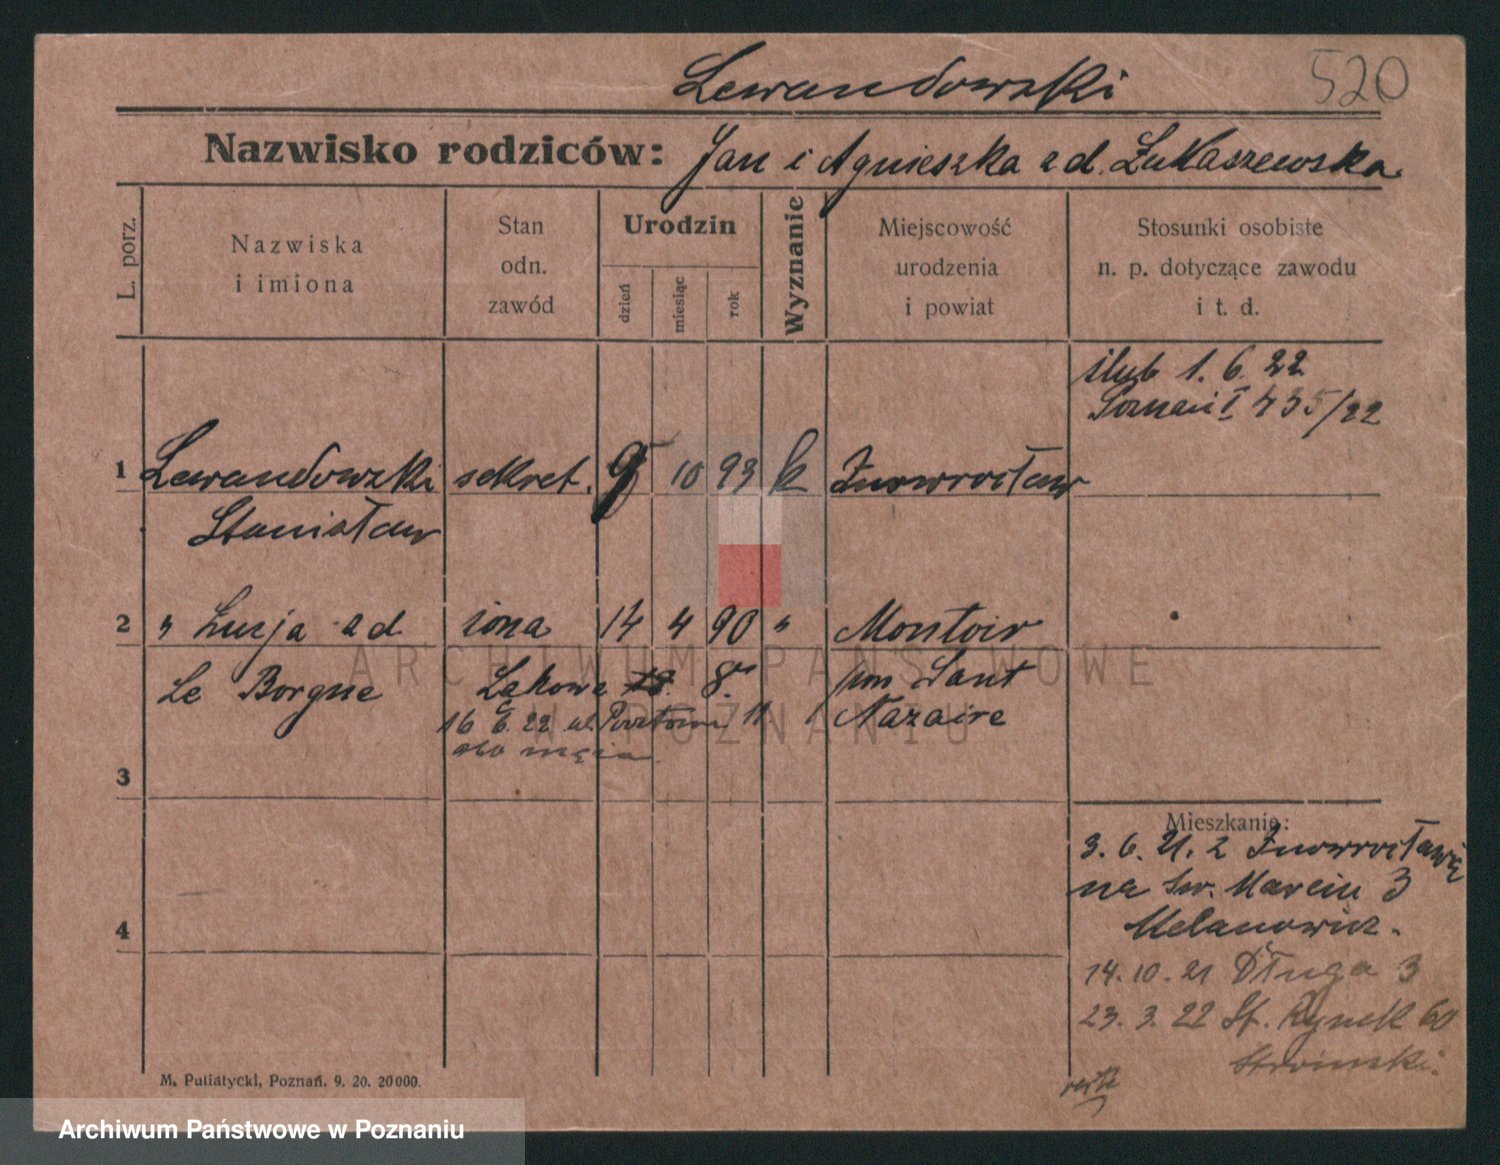 Lewandowski
520
Nazwisko rodziców: Jan i Agnieszka z d. Łukaszewska
L. porz.
Nazwiska
i imiona
Stan
odn.
zawód
Urodzin
dzień
miesiąc
rok
Wyznanie
Miejscowość
urodzenia
i powiat
Stosunki osobiste
n. p. dotyczące zawodu
i t. d.
ślub 1. 6. 22
Poznań I 435/22
1 Lewandowski sekret. 9 10 93 k Inowrocław
Stanisław
2 " Łucja z d żona 14 4 90 " Montoir
Le Borgne Łąkowa 18. 8. pon Sant
16 6. 22 ul. Pocztowa 11 Nazaire
obo męża
3
Mieszkanie:
3. 6. 21. z Inowrocławia
na Św. Marcin 3
Melanowicz.
4
14. 10. 21 Długa 3
23. 3. 22 St. Rynek 60
M. Putiatycki, Poznań. 9. 20. 20000.
ARCHIWUM PAŃSTWOWE
W POZNANIU
Archiwum Państwowe w Poznaniu